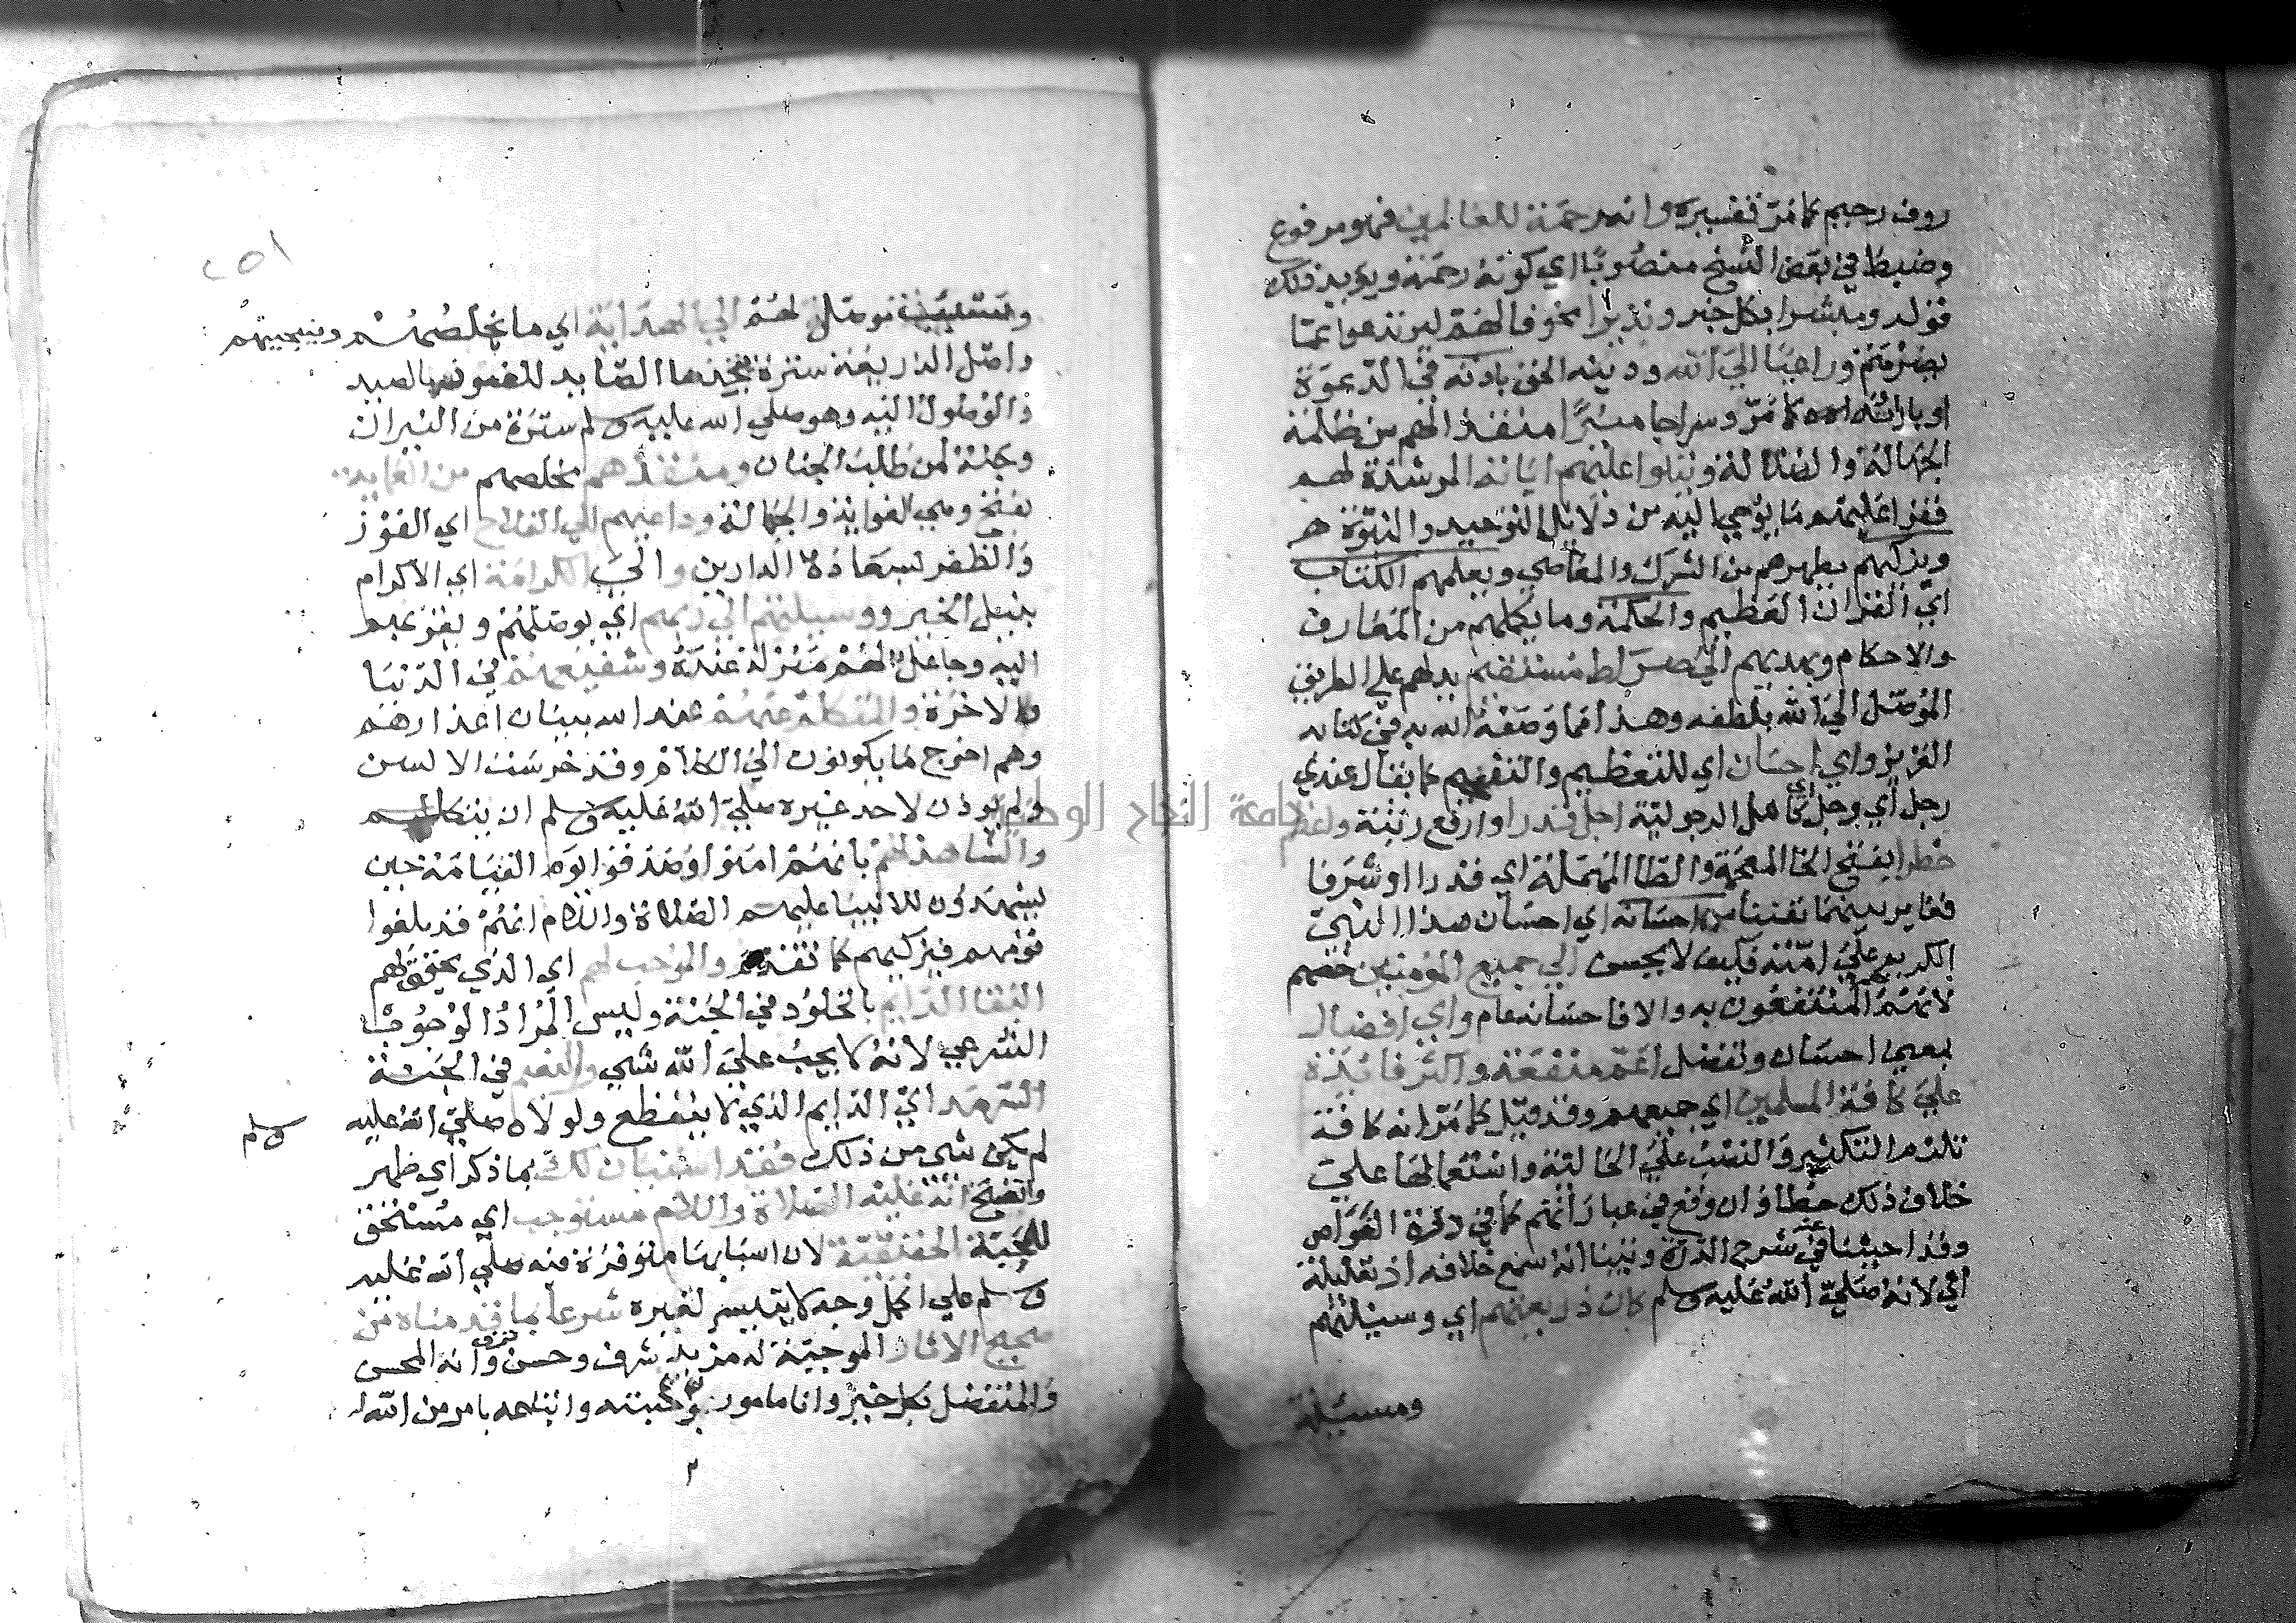 روف رحيم كما مر تفسيره وانه رحمة للعالمين فهو مرفوع
وضبط في بعض النسخ منصوبا اي كونه رحمة ويؤيد ذلك
قوله ومبشرا بكل خير ونذيرا مخوفا لهم ليرتدعوا عما
يضرهم وداعيا الي الله ودينه الحق باذنه في الدعوة
او بارادته كما مر وسراجا منيرا منقذا لهم من ظلمة
الجهالة والضلالة ويتلوا عليهم اياته المرشدة لهم
فيقرا عليهم ما يوحي اليه من دلايل التوحيد والنبوة
ويزكيهم يطهرهم من الشرك والمعاصي ويعلمهم الكتاب
اي القران العظيم والحكمة وما يكملهم من المعارف
والاحكام ويهديهم الي صراط مستقيم يدلهم علي الطريق
الموصل الي الله بلطفه وهذا مما وصفه الله به في كتابه
العزيز واي احسان اي للتعظيم والتفخيم كما يقال عندي
رجل اي رجل اي كامل الرجولية اجل قدرا وارفع رتبة واعظم
خطرا بفتح الخا المعجمة والطا المهملة اي قدرا او شرفا
فغاير بينهما تفننا من احسانه اي احسان هذا النبي
الكريم علي امته فكيف لا يحسن الي جميع المؤمنين خصهم
لانهم المنتفعون به والا فاحسانه عام واي افضال
بمعني احسان وتفضل اعم منفعة واكثر فائدة
علي كافة المسلمين اي جميعهم وقد قيل كما مر انه كافة
تلزم التنكير والنصب علي الحالية واستعمالها علي
خلاف ذلك خطا وان وقع في عباراتهم كما في درة الغواص
وقد احبنا عنه في شرح الدرة وبينا انه سمع خلافه اذ تعليلية
اي لانه صلي الله عليه وسلم كان ذريعتهم اي وسيلتهم
ومسيلة
٢٥١
توصل لهم الي الهداية اي ما يخلصهم وينجيهم
واصل الذريعة سترة يتخذها الصايد للغوص بالصيد
والوصول اليه وهو صلي الله عليه وسلم سترة من النيران
وجنة لمن طلب الجنان ومنقذهم مخلصهم من العماية
بفتح وهي الغواية والجهالة وداعيهم الي الفلاح اي الفوز
والظفر بسعادة الدارين والي الكرامة اي الاكرام
بنيل الخير ووسيلتهم الي ربهم اي يوصلهم ويقربهم
اليه وجاعل لهم منزلة عنده وشفيعهم في الدنيا
والاخرة والمتكلم عنهم عند الله ببيان اعذارهم
وهم احوج ما يكونون الي الكلام وقد خرست الالسن
ولم يوذن لاحد غيره صلي الله عليه وسلم ان يتكلم
والشاهد لهم بانهم امنوا وصدقوا يوم القيامة حين
يشهدون للانبيا عليهم الصلاة والسلام انهم قد بلغوا
قومهم فيزكيهم كما تقدم والموجب لهم اي الذي يحقق لهم
البقا الدايم بالخلود في الجنة وليس المراد الوجوب
الشرعي لانه لا يجب علي الله شي والنعيم في الجنة
السرمد اي الدايم الذي لا ينقطع ولولاه صلي الله عليه
وسلم
لم يكن شي من ذلك فقد استبان لك بما ذكر اي ظهر
واتضح انه عليه الصلاة والسلام مستوجب اي مستحق
للمحبة الحقيقية لان اسبابها متوفرة فيه صلي الله عليه
وسلم علي اكمل وجه لا يتيسر لغيره شرعا بما قدمناه من
صحيح الاثار الموجبة له مزيد شرف وحسن وانه المحسن
والمتفضل بكل خير وانا مامورون بمحبته واتباعه بامر من الله
٢
جامعة النجاح الوطنية